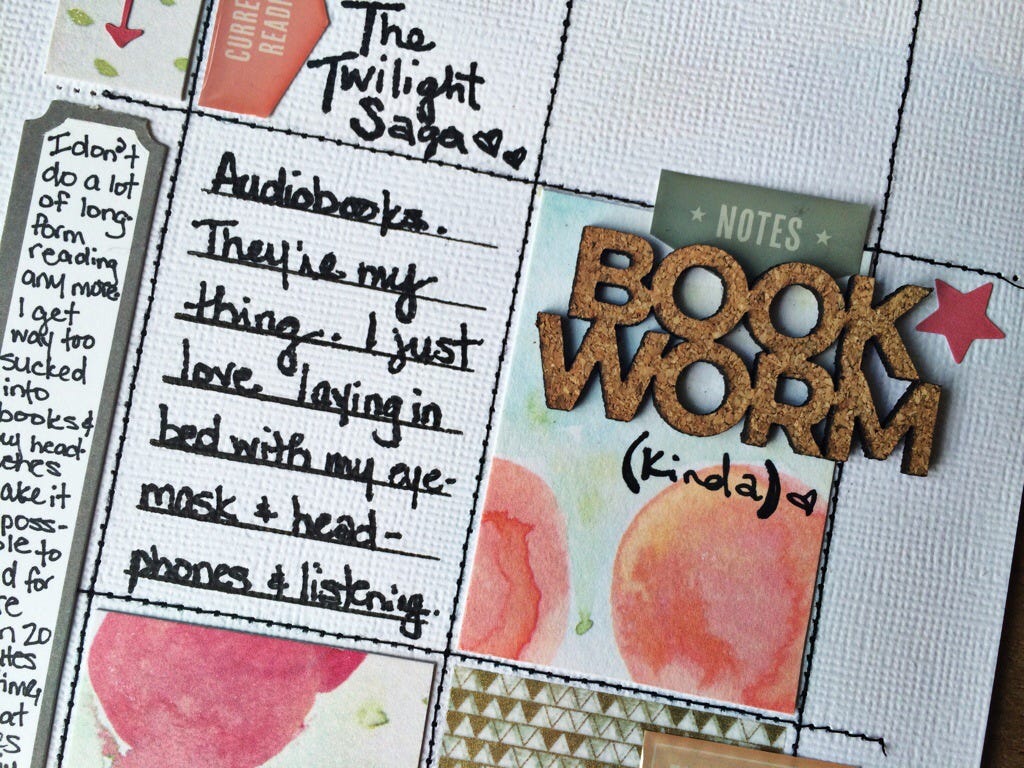 CURRE
READI
The
Twilight
Saga
I don't
do a lot
of long
form
reading
any more
I get
way too
sucked
into
books &
my head-
ake it
poss-
to
for
20
time,
at
Audiobooks.
They're my
thing.. I just
love laying in
bed with my eye-
mask & head-
phones & listening.
NOTES
BOOK
WORM
(kinda)